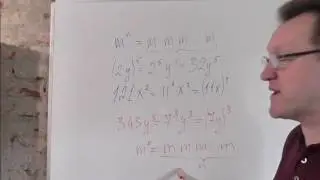 mⁿ = m m m m
(2y)⁵ = 2⁵y⁵ = 32y⁵
121x² = 11²x² = (11x)²
343y³ = 7³y³ = (7y)³
mⁿ = m m m m
n